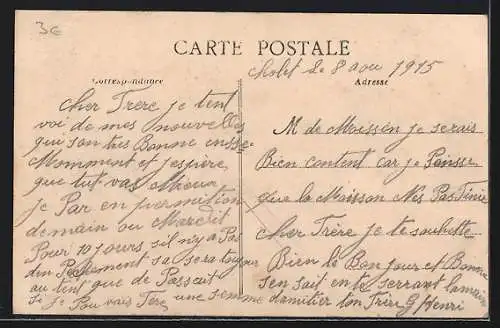 3€
CARTE POSTALE
Correspondance
Adresse
Cholet le 8 aou 1915
Cher Frere je tent
voi de mes nouvelles
qui son tres Bonne en se
Momment et jespère
que tut vas Mieux
je Par en permition
demain ou Mercrit
Pour 10 jours s'il n'y a Pas
den Pechement sa sera toujour
au tent que de Passait
si je Pou vais Fere une semme
M de Moisson je serais
Bien content car je Pensse
que la Moisson N'es Pas Finie
Cher Frère je te souhette
Bien le Bonjour et Bonne
sen sait en te serrant la main
damilier ton Frère G Henri